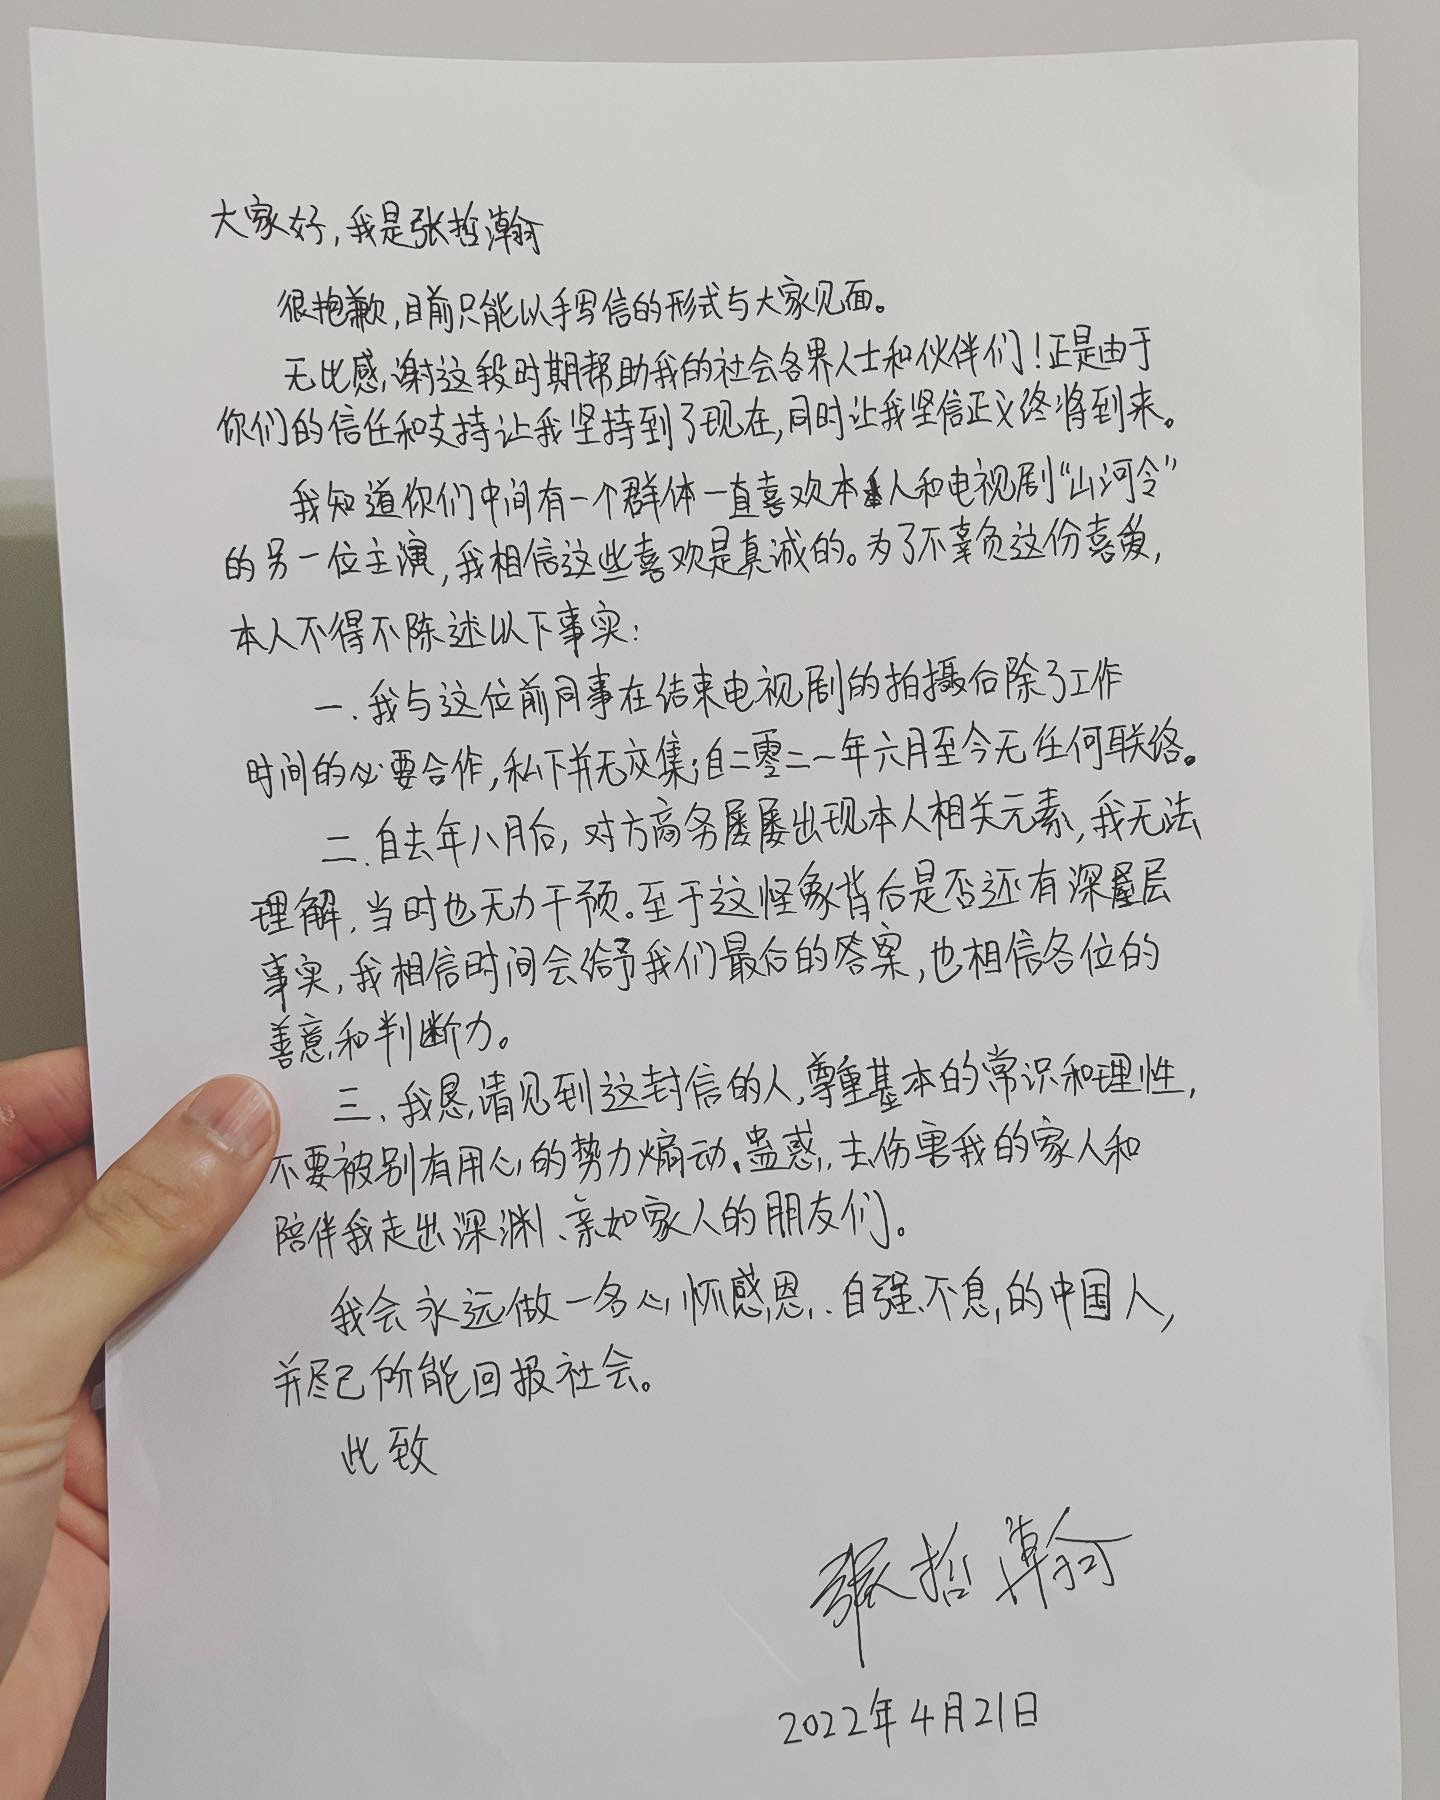 大家好,我是张哲瀚
很抱歉,目前只能以手写信的形式与大家见面。
无比感谢这段时期帮助我的社会各界人士和伙伴们!正是由于
你们的信任和支持让我坚持到了现在,同时让我坚信正义终将到来。
我知道你们中间有一个群体一直喜欢本人和电视剧“山河令”
的另一位主演,我相信这些喜欢是真诚的。为了不辜负这份喜爱,
本人不得不陈述以下事实:
一.我与这位前同事在结束电视剧的拍摄后除了工作
时间的必要合作,私下并无交集;自二零二一年六月至今无任何联络。
二.自去年八月后,对方商务屡屡出现本人相关元素,我无法
理解,当时也无力干预。至于这怪象背后是否还有深层
事实,我相信时间会给予我们最后的答案,也相信各位的
善意和判断力。
三、我恳请见到这封信的人,尊重基本的常识和理性,
不要被别有用心的势力煽动、蛊惑,去伤害我的家人和
陪伴我走出深渊、亲如家人的朋友们。
我会永远做一名心怀感恩、自强不息的中国人,
并尽己所能回报社会。
此致
张哲瀚
2022年4月21日